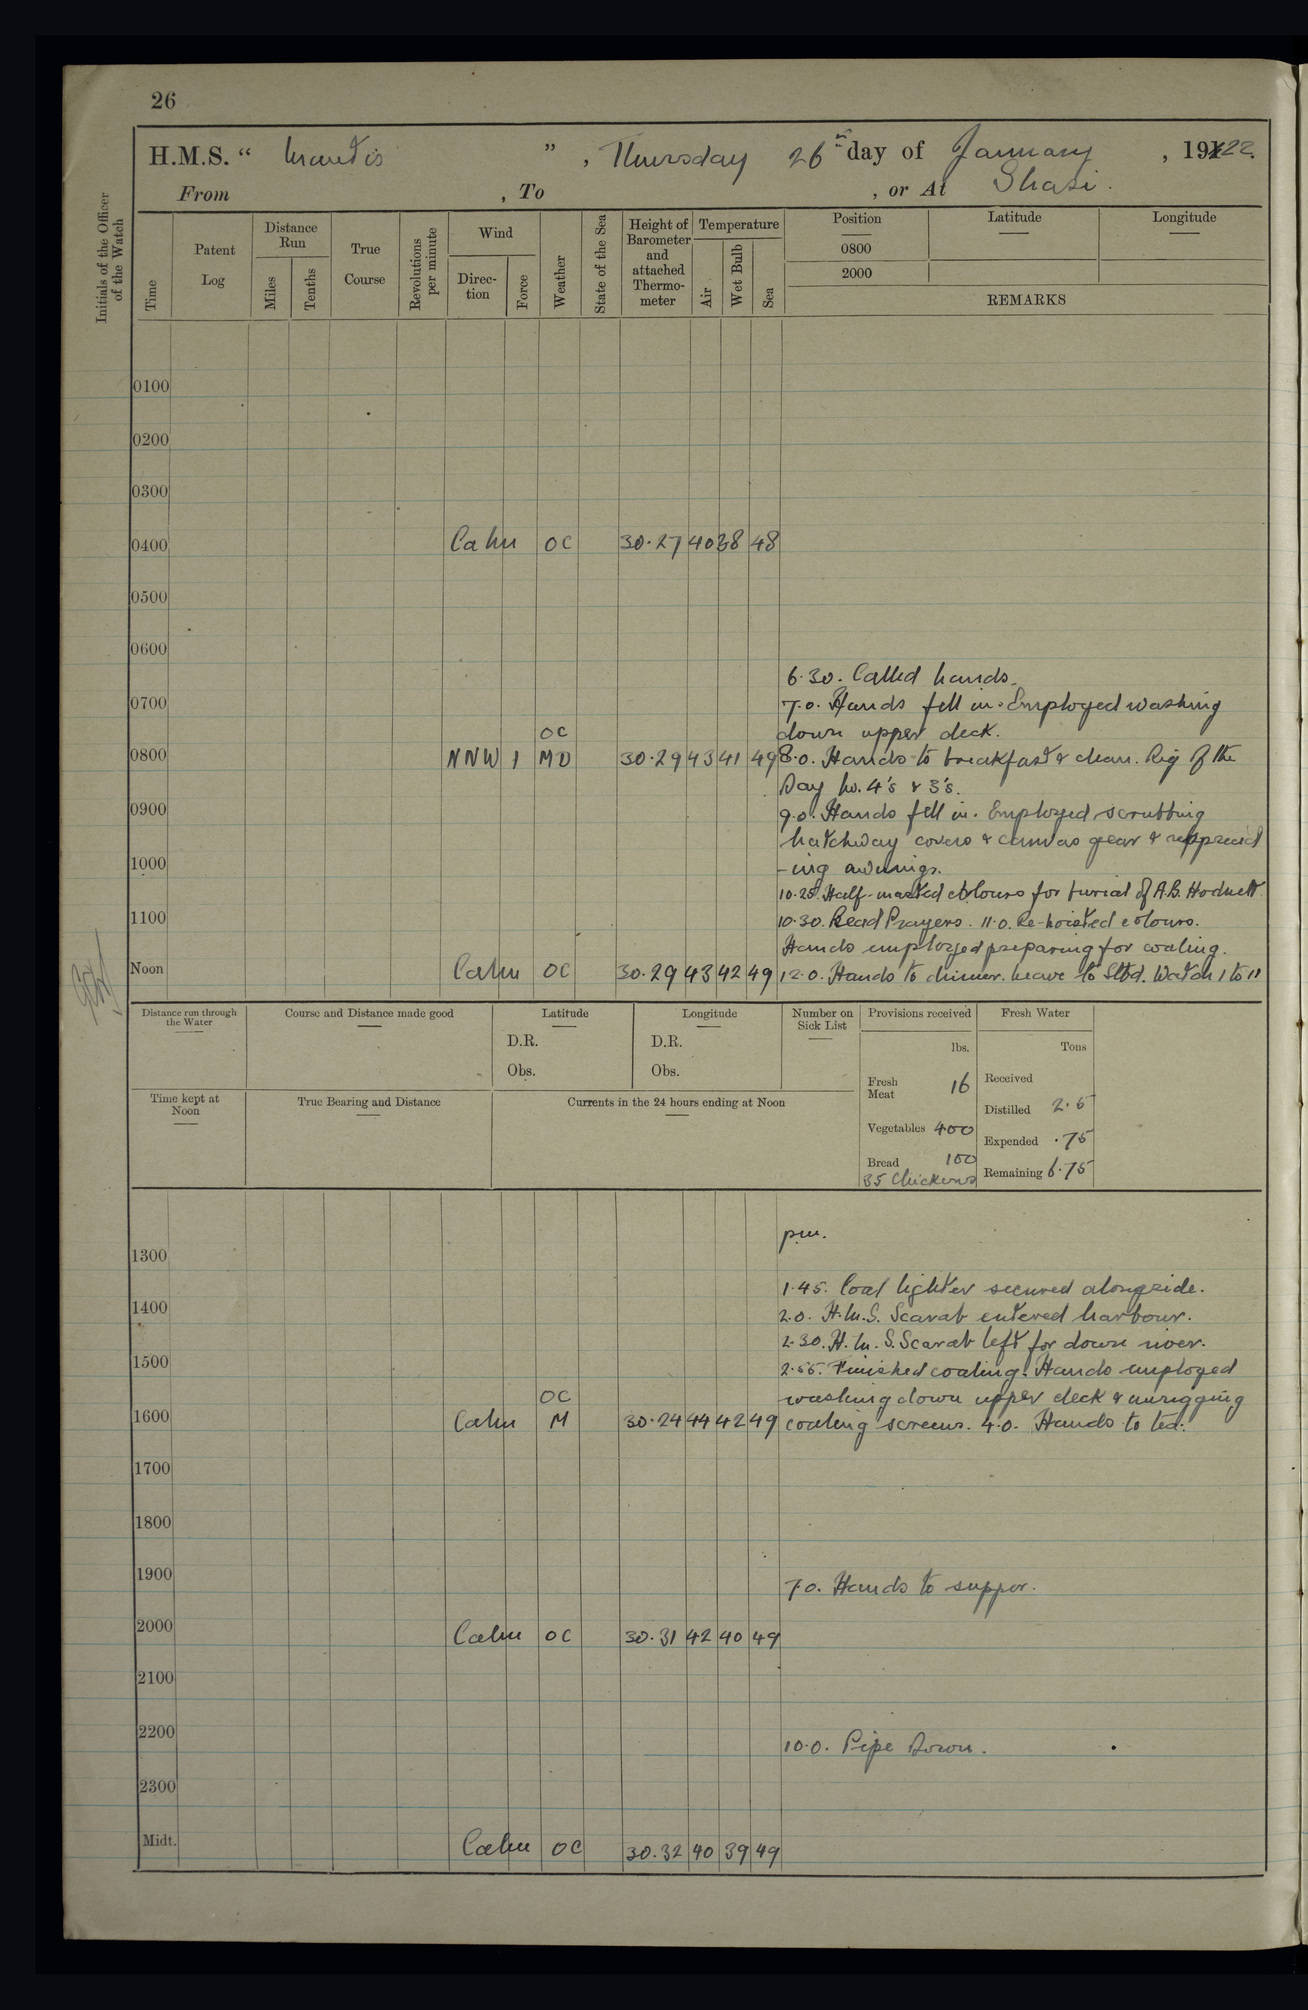 26
H.M.S. “ Mantis ” , Thursday 26th day of January , 1922.
From , To , or At Shasi.
Initials of the Officer of the Watch
Time
Patent Log
Distance Run
Miles
Tenths
True Course
Revolutions per minute
Wind
Direc-tion
Force
Weather
State of the Sea
Height of Barometer and attached Thermo-meter
Temperature
Air
Wet Bulb
Sea
Position
Latitude
Longitude
0800
2000
REMARKS
0100
0200
0300
0400 Calm OC 30.27 40 38 48
0500
0600
6.30. Called hands.
0700 7.0. Hands fell in. Employed washing
down upper deck.
OC
0800 NNW 1 MD 30.29 43 41 49 8.0. Hands to breakfast & clean. Rig of the
Day No. 4's & 3's.
0900 9.0. Hands fell in. Employed scrubbing
hatchway covers & canvas gear &
1000 -ing awnings.
10.25 Half-masted colours for burial of A.B. Hodnett
1100 10.30. Read Prayers. 11.0. Re-hoisted colours.
Hands employed preparing for coaling.
Noon Calm OC 30.29 43 42 49 12.0. Hands to dinner. Leave to Stbd. Watch 1 to 11
Distance run through the Water
Course and Distance made good
Latitude
D.R.
Obs.
Longitude
D.R.
Obs.
Number on Sick List
Provisions received
lbs.
Fresh Meat 16
Vegetables 400
Bread 100
35 Chickens
Fresh Water
Tons
Received
Distilled 2.5
Expended .75
Remaining 6.75
Time kept at Noon
True Bearing and Distance
Currents in the 24 hours ending at Noon
p.m.
1300
1.45. Coal lighter secured alongside.
1400 2.0. H.M.S. Scarab entered harbour.
2.30. H.M.S. Scarab left for down river.
1500 2.55. Finished coaling. Hands employed
OC washing down upper deck & unrigging
1600 Calm M 30.24 44 42 49 coaling screens. 4.0. Hands to tea.
1700
1800
1900 7.0. Hands to supper.
2000 Calm OC 30.31 42 40 49
2100
2200 10.0. Pipe Down.
2300
Midt. Calm OC 30.32 40 39 49